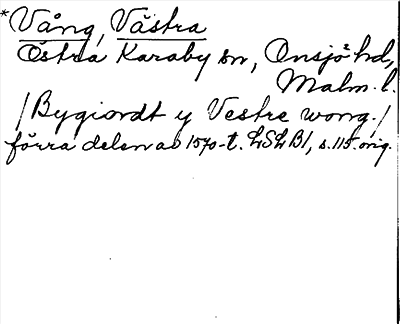 *Vång, Västra
Östra Karaby sn, Onsjö hd,
Malm. l.
/Bygiordt y Vestre wong./
förra delen av 1570-t. LSLB1, s. 115. orig.